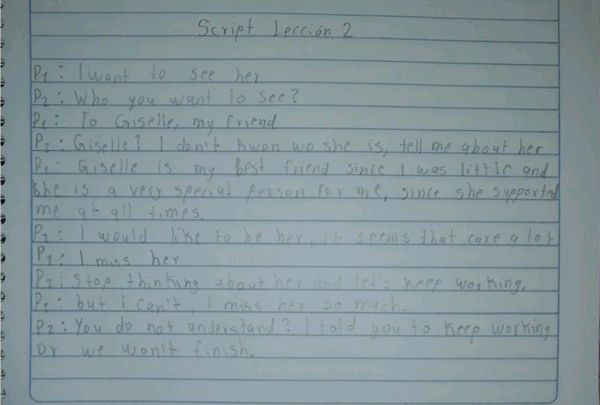 Script Lección 2
P1: I want to see her
P2: Who you want to see?
P1: To Giselle, my friend
P2: Giselle? I don't kwon wo she is, tell me about her
P1: Giselle is my best friend since I was little and
she is a very special person for me, since she supported
me at all times.
P2: I would like to be her, it seems that care a lot
P1: I miss her
P2: Stop thinking about her and let's keep working.
P1: but i can't, I miss her so much.
P2: You do not understand? I told you to keep working
or we won't finish.